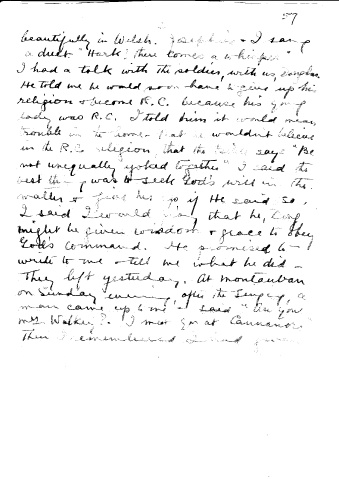 57
beautifully in Welsh. Josephine & I sang
a duet "Hark! there comes a whisper"
I had a talk with the soldier, with us
He told me he would soon have to give up his
religion & become R.C. because his young
lady was R.C. I told him it would mean
trouble in the
in the R.C. religion that the say "Be
not unequally yoked together" I said the
best thing was to seek God's will in the
matter & give her up if He said so.
I said I would pray that he, Craig
might be given wisdom & grace to obey
God's command. He promised to
write to me & tell me what he did -
They left yesterday. At Montauban
on Sunday evening, after the singing, a
man came up to me & said "Are you
Mrs Walker?" I met you at
Then I remembered